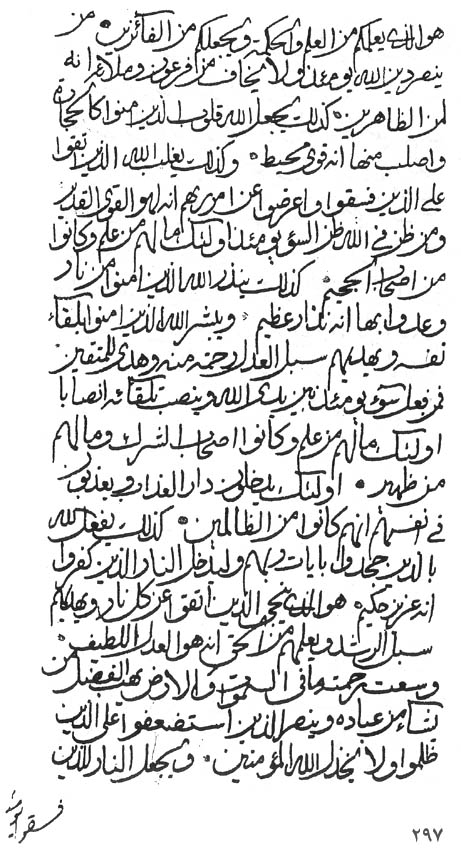 هو الذي يعلمكم من العلم والحكمة ويجعلكم من الفائزين • من
ينصر دين الله يومئذ ولا يخاف من فرعون وملائه انه
لمن الظاهرين • كذلك يجعل الله قلوب الذين امنوا كالحجارة
واصلب منها انه قوي محيط • وكذلك يغلب الله الذين اتقوا
على الذين فسقوا واعرضوا عن امر ربهم انه لهو القوي القدير
ومن ظن في الله ظن السوء يومئذ اولئك ما لهم من علم وكانوا
من اصحاب الجحيم كذلك ينذر الله الذين امنوا من نار
وعدوا بها انه لنار عظيم • ويبشر الله الذين امنوا بلقاء
نفسه ويهديهم سبل العدل رحمة منه وهدى للمتقين
فمن فعل سوء يومئذ بين يدي الله وينصب تلقائه انصابا
اولئك ما لهم من علم وكانوا اصحاب الشرك وما لهم
من ظهير • اولئك يدخلون دار العذاب ويعذبون
في انفسهم انهم كانوا من الظالمين • كذلك يفعل الله
بالذين جحدوا بايات ربهم وليدخل النار الذين كفروا
انه عزيز حكيم • هو الذي ينجي الذين اتقوا عن كل نار ويهديهم
سبل الرشد ويعلمهم من الحق انه هو العدل اللطيف •
وسعت رحمته ما في السموات والارض يهب الفضل من
يشاء من عباده وينصر الذين استضعفوا على الذين
ظلموا ولا يخذل الله المؤمنين • ويجعل النار للذين
فسقوا يومئذ
٢٩٧